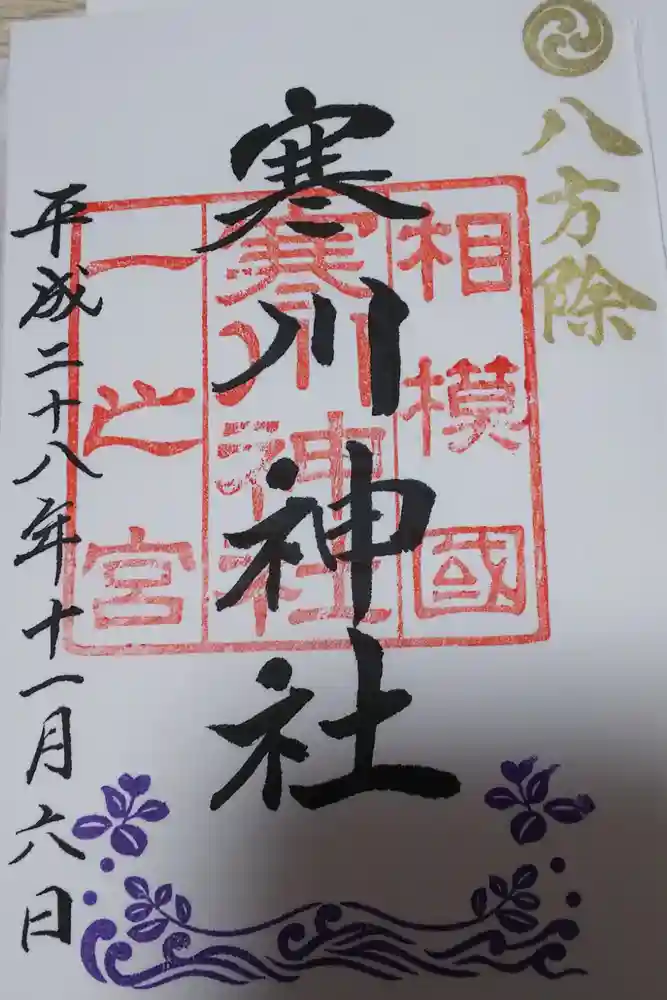 八方除
相模國
寒川神社
一之宮
寒川神社
平成二十八年十一月六日